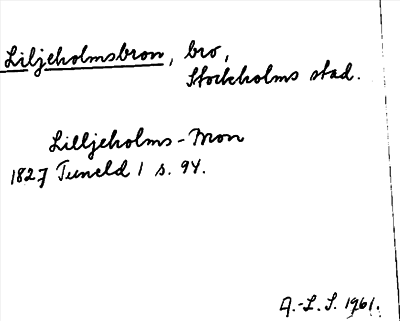 Liljeholmsbron, bro,
Stockholms stad.
Lilljeholms-Bron
1827 Tuneld I s. 94.
A.-L. S. 1961.